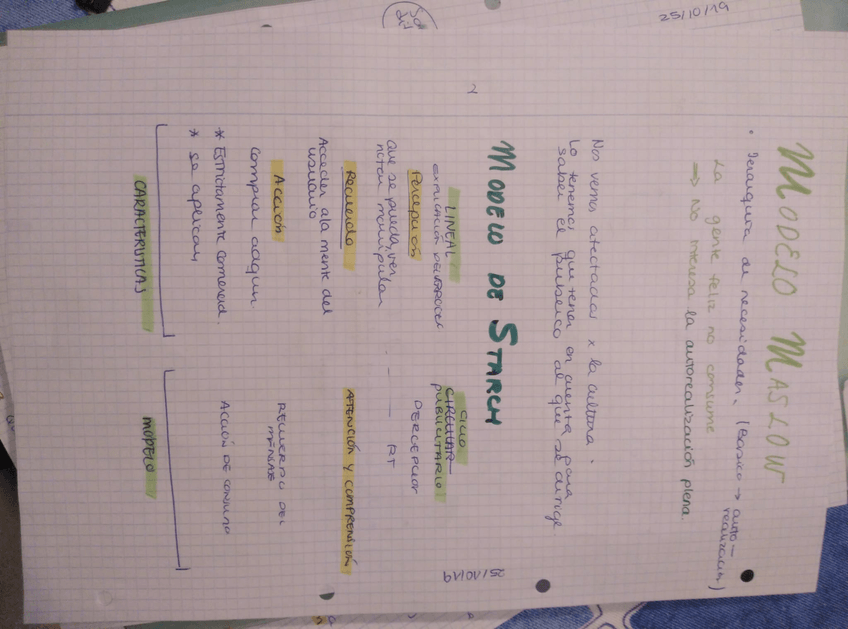 25/10/19
MODELO MASLOW
• Jerarquía de necesidades. (Básico → auto-
realización)
La gente feliz no consume
⇒ No interesa la autorealización plena.
Nos vemos afectados x la cultura.
Lo tenemos que tener en cuenta para
saber el público al que se dirige
2
25/10/19
MODELO DE STARCH
LINEAL
EXPLICACIÓN DEL PROCESO
Percepción
Que se pueda ver,
notar, manipular
Recuerdo
Acceder a la mente del
usuario
Acción
Comprar
* Estrictamente comercial.
* se aplican
CARACTERÍSTICAS
CICLO
CIRCULAR
PUBLICITARIO
PERCEPCIÓN
RT
ATENCIÓN Y COMPRENSIÓN
RECUERDO DEL
MENSAJE
ACCIÓN DE CONSUMO
MODELO